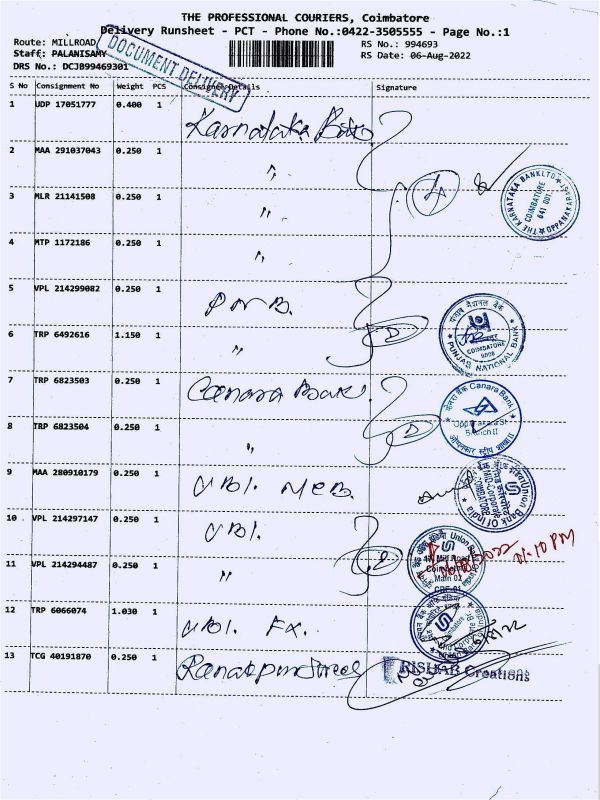 THE PROFESSIONAL COURIERS, Coimbatore
Delivery Runsheet - PCT - Phone No.:0422-3505555 - Page No.:1
Route: MILLROAD RS No.: 994693
Staff: PALANISAMY RS Date: 06-Aug-2022
DRS No.: DCJB99469301
DOCUMENT DELIVERY
S No Consignment No Weight PCS Consignee Details Signature
1 UDP 17051777 0.400 1
Karnataka
2 MAA 291037043 0.250 1 "
THE KARNATAKA BANK LTD
COIMBATORE
641 001
3 MLR 21141508 0.250 1 "
4
4 MTP 1172186 0.250 1 "
5 VPL 214299082 0.250 1
PNB.
पंजाब नैशनल बैंक
COIMBATORE
PUNJAB NATIONAL BANK
6 TRP 6492616 1.150 1 "
2
7 TRP 6823503 0.250 1
Canara Bank
केनरा बैंक Canara Bank
Branch II
8 TRP 6823504 0.250 1 "
2
9 MAA 280910179 0.250 1
UBI. MCB.
Union Bank Of India
Mid-Corporate
COIMBATORE
10 VPL 214297147 0.250 1
UBI.
11-10 PM
11 VPL 214294487 0.250 1 "
2
Union Bank
Mill Road
Coimbatore
Main 02
12 TRP 6066074 1.030 1
UBI. Fx.
13 TCG 40191870 0.250 1
RISHAB Creations